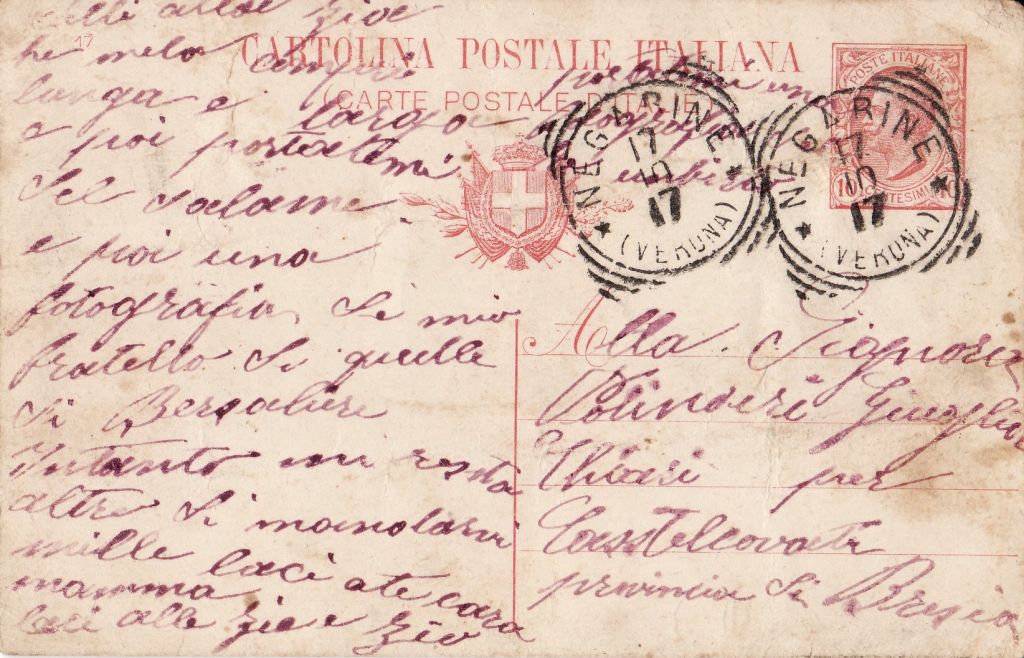 17
CARTOLINA POSTALE ITALIANA
(CARTE POSTALE D'ITALIE)
POSTE ITALIANE
CENTESIMI
NEGARINE
17
10
17
(VERONA)
NEGARINE
17
10
17
(VERONA)
alle zie
che
lunga e larga
e poi portatemi
del salame
e poi una
fotografia di mio
fratello di quelle
di Bersaliere
Intanto mi resta
altro di mandarvi
mille baci a te cara
mamma
baci alle zie e zio
portatemi un
Alla Signora
Chiari per
Casstelcovati
provincia di Bresia